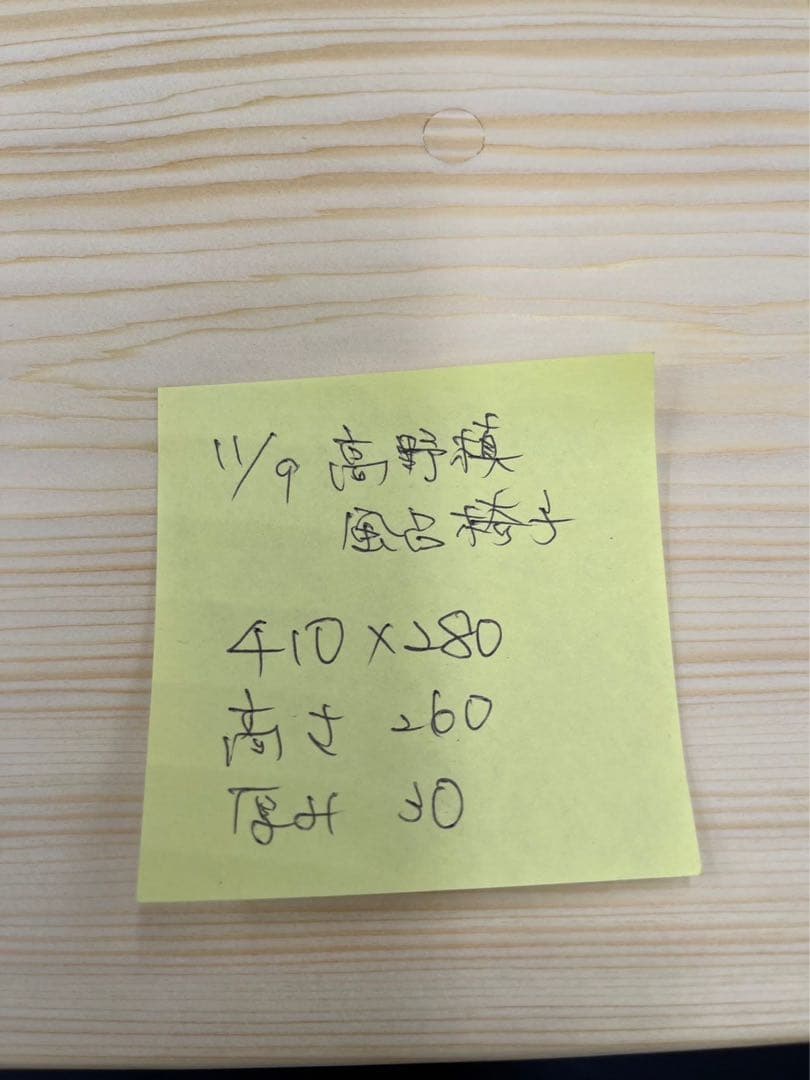 11/9 高野槙
風呂椅子
410×280
高さ 260
厚み 30